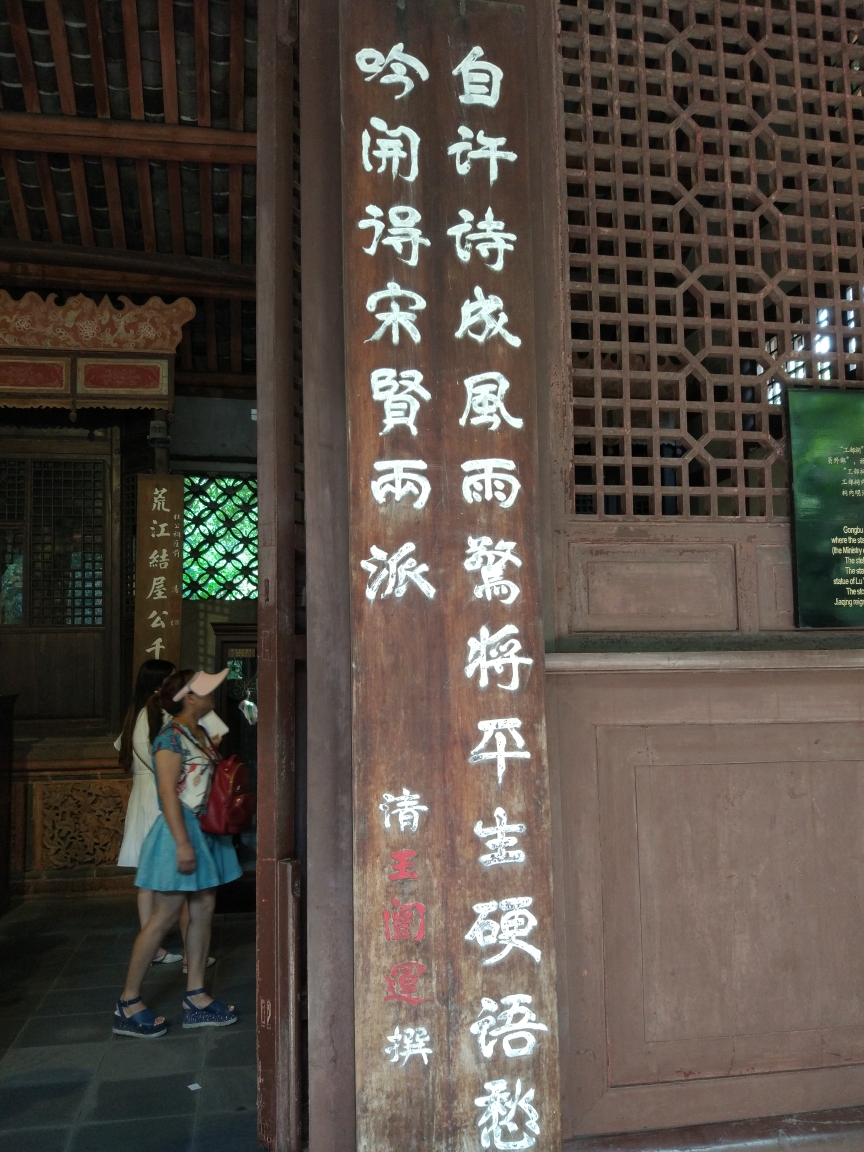 自许诗成風雨驚将平生硬语愁
吟開得宋賢兩派
清王闓運撰
荒江結屋公千
Gongbu
where the sta
(the Ministry
The ste
The sta
statue of Lu
The sto
Jiaqing reign